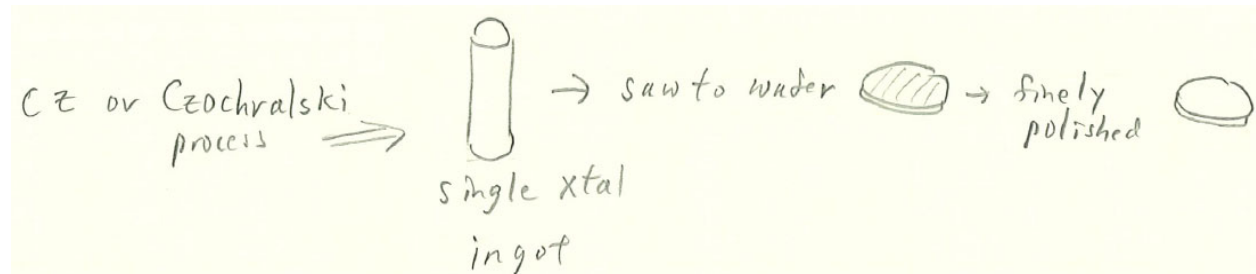 CZ or Czochralski
process
single xtal
ingot
saw to wafer
finely
polished